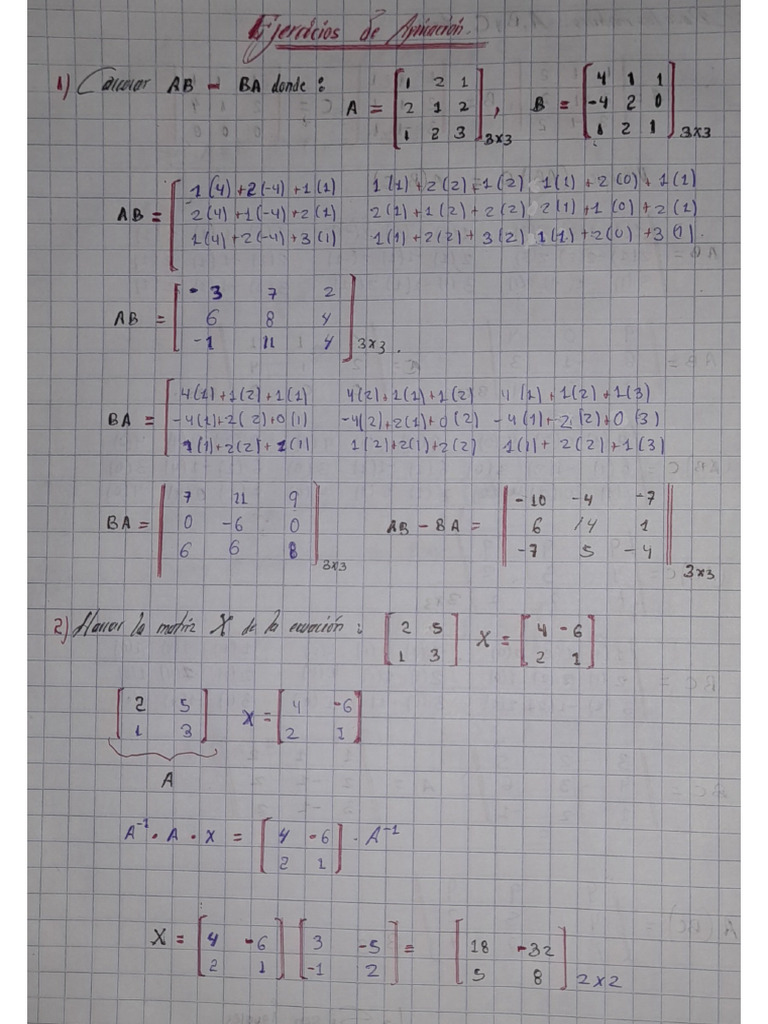 Ejercicios de Apliación.
1) Calcular AB - BA donde : A = [1 2 1; 2 1 2; 1 2 3] 3x3 , B = [4 1 1; -4 2 0; 1 2 1] 3x3
AB = [1(4)+2(-4)+1(1) 1(1)+2(2)+1(2) 1(1)+2(0)+1(1)
2(4)+1(-4)+2(1) 2(1)+1(2)+2(2) 2(1)+1(0)+2(1)
1(4)+2(-4)+3(1) 1(1)+2(2)+3(2) 1(1)+2(0)+3(1).
AB = [-3 7 2
6 8 4
-1 11 4] 3x3.
BA = [4(1)+1(2)+1(1) 4(2)+1(1)+1(2) 4(1)+1(2)+1(3)
-4(1)+2(2)+0(1) -4(2)+2(1)+0(2) -4(1)+2(2)+0(3)
1(1)+2(2)+1(1) 1(2)+2(1)+2(2) 1(1)+2(2)+1(3)
BA = [7 11 9; 0 -6 0; 6 6 8] 3x3 AB - BA = [-10 -4 -7; 6 14 1; -7 5 -4] 3x3
2) Hallar la matriz X de la ecuación : [2 5; 1 3] X = [4 -6; 2 1]
[2 5; 1 3] X = [4 -6; 2 1]
A
A⁻¹ • A • X = [4 -6; 2 1] • A⁻¹
X = [4 -6; 2 1] [3 -5; -1 2] = [18 -32; 5 8] 2x2